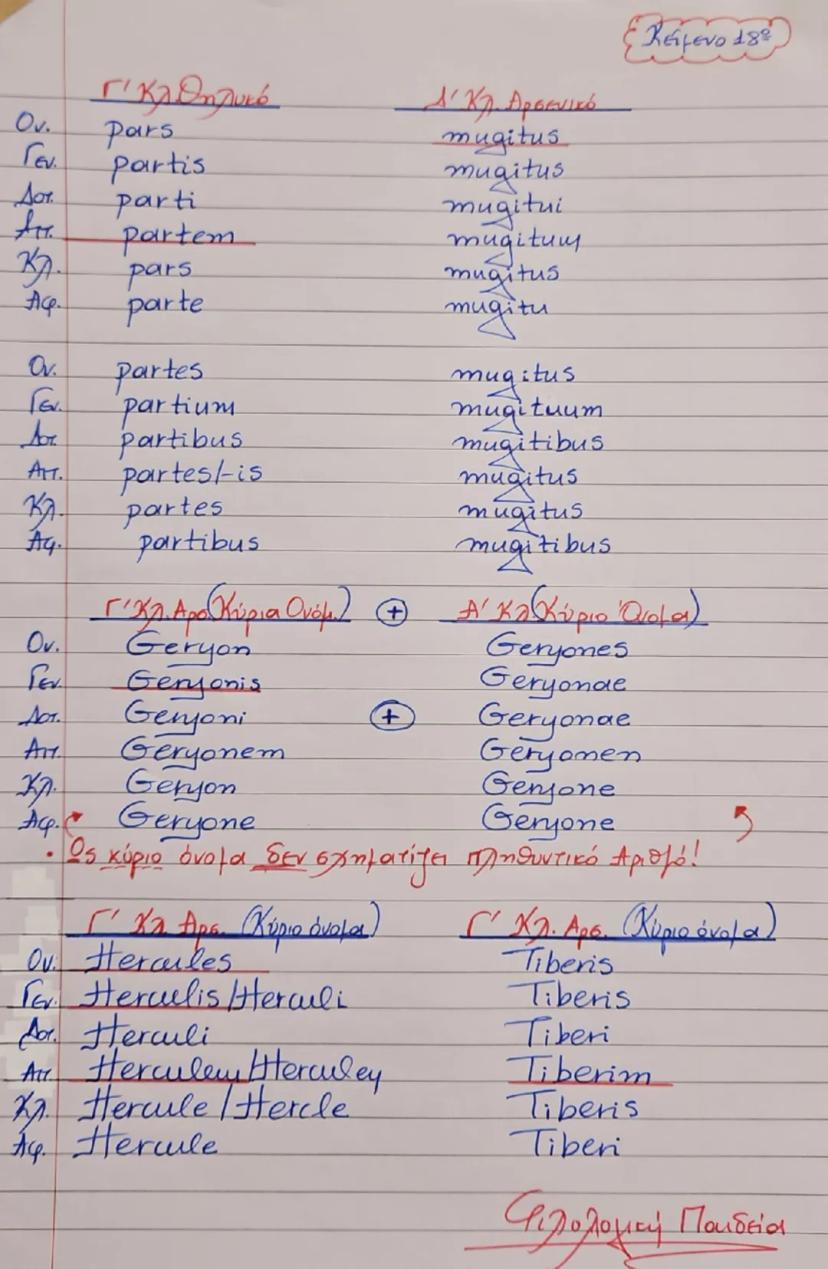 Κείμενο 18ο
Γ' Κλ Θηλυκό Δ' Κλ. Αρσενικό
Ον. pars mugitus
Γεν. partis mugitus
Δοτ. parti mugitui
Αιτ. partem mugitum
Κλ. pars mugitus
Αφ. parte mugitu
Ον. partes mugitus
Γεν. partium mugituum
Δοτ. partibus mugitibus
Αιτ. partes/-is mugitus
Κλ. partes mugitus
Αφ. partibus mugitibus
Γ' Κλ. Αρσ (Κύρια Ονόμ.) + Α' Κλ (Κύριο Όνομα)
Ον. Geryon Geryones
Γεν. Geryonis Geryonae
Δοτ. Geryoni + Geryonae
Αιτ. Geryonem Geryonen
Κλ. Geryon Geryone
Αφ. Geryone Geryone
• Ως κύριο όνομα δεν σχηματίζει πληθυντικό Αριθμό!
Γ' Κλ Αρσ. (Κύριο όνομα) Γ' Κλ. Αρσ. (Κύριο όνομα)
Ον. Hercules Tiberis
Γεν. Herculis/Herculi Tiberis
Δοτ. Herculi Tiberi
Αιτ. Herculem/Herculen Tiberim
Κλ. Hercule/Hercle Tiberis
Αφ. Hercule Tiberi
Φιλολογική Παιδεία